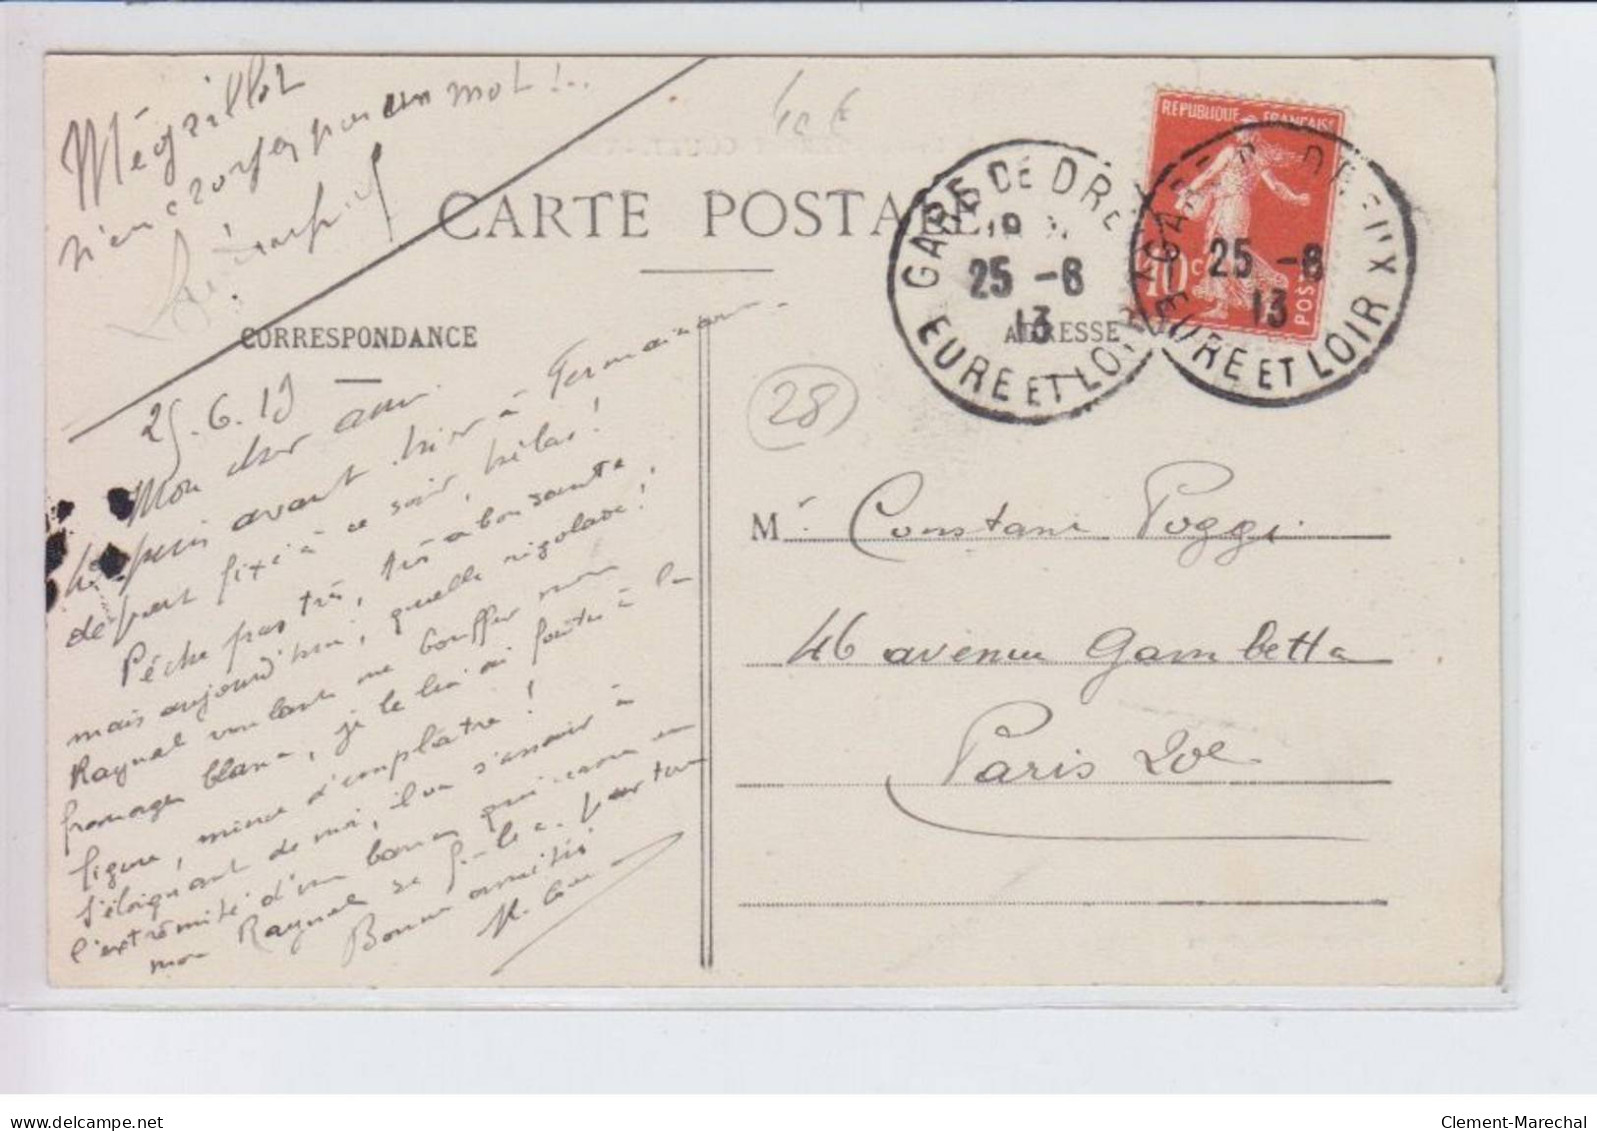 Mégaillot
n'en
pas un mot!..
40 €
CARTE POSTALE
CORRESPONDANCE
ADRESSE
RÉPUBLIQUE FRANÇAISE
10 c
POSTES
GARE DE DRE
25 -6
13
EURE ET LOIR
GARE DREUX
25 -6
13
EURE ET LOIR
28
25.6.13
Mon cher ami
Depuis avant hier à Germainville
départ fixé à ce soir, hélas!
Pêche pas très, très abondante,
mais aujourd'hui, quelle rigolade!
Raynal voulant me bouffer mon
fromage blanc, je le lui ai foutu à la
figure, mince d'emplâtre!
S'éloignant de moi, il va s'asseoir à
l'extrémité d'un banc, qui
mon Raynal se par terre
Bonnes amitiés
M. Constant Poggi
46 avenue Gambetta
Paris 20e
Clement-Marechal